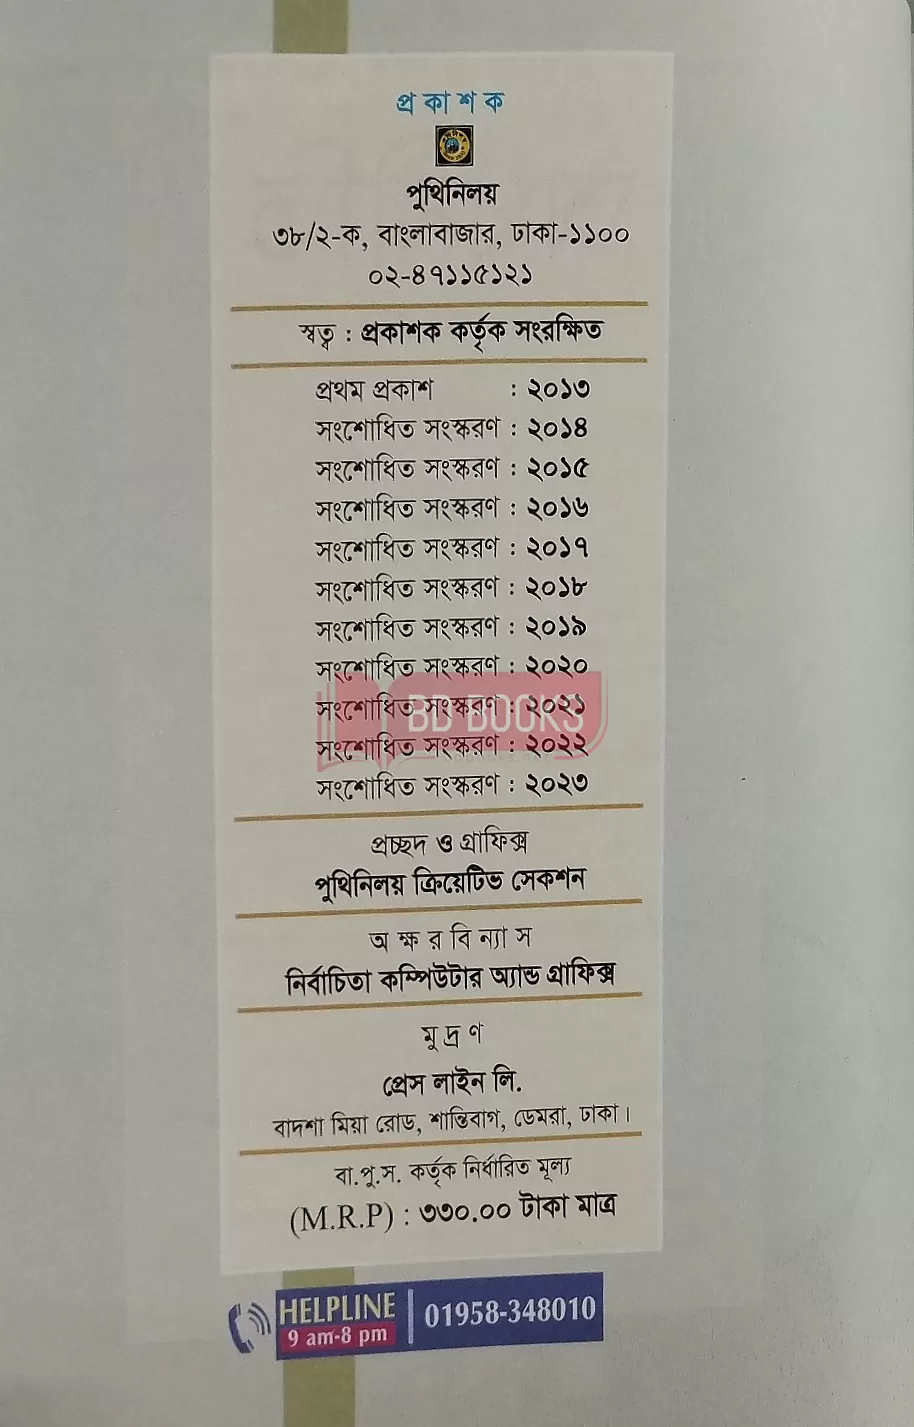 প্র কা শ ক
পুথিনিলয়
৩৮/২-ক, বাংলাবাজার, ঢাকা-১১০০
০২-৪৭১১৫১২১
স্বত্ব : প্রকাশক কর্তৃক সংরক্ষিত
প্রথম প্রকাশ : ২০১৩
সংশোধিত সংস্করণ : ২০১৪
সংশোধিত সংস্করণ : ২০১৫
সংশোধিত সংস্করণ : ২০১৬
সংশোধিত সংস্করণ : ২০১৭
সংশোধিত সংস্করণ : ২০১৮
সংশোধিত সংস্করণ : ২০১৯
সংশোধিত সংস্করণ : ২০২০
সংশোধিত সংস্করণ : ২০২১
BD BOOKS
সংশোধিত সংস্করণ : ২০২২
সংশোধিত সংস্করণ : ২০২৩
প্রচ্ছদ ও গ্রাফিক্স
পুথিনিলয় ক্রিয়েটিভ সেকশন
অ ক্ষ র বি ন্যা স
নির্বাচিতা কম্পিউটার অ্যান্ড গ্রাফিক্স
মু দ্র ণ
প্রেস লাইন লি.
বাদশা মিয়া রোড, শান্তিবাগ, ডেমরা, ঢাকা।
বা.পু.স. কর্তৃক নির্ধারিত মূল্য
(M.R.P) : ৩৩০.০০ টাকা মাত্র
HELPLINE
9 am-8 pm
01958-348010